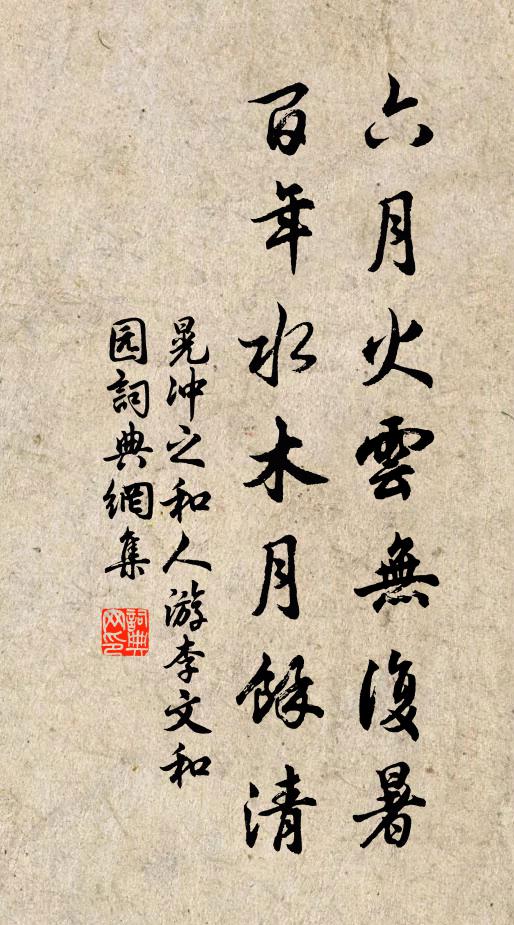 六月火雲無復暑
百年水木月餘清
晁沖之和人游李文和
园詞典網集
詞典
网印